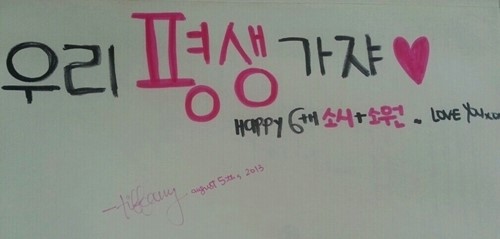 우리 평생 가쟈♥
HAPPY 6th 소시+소원. LOVE YOU xxx
—Tiffany august 5th, 2013